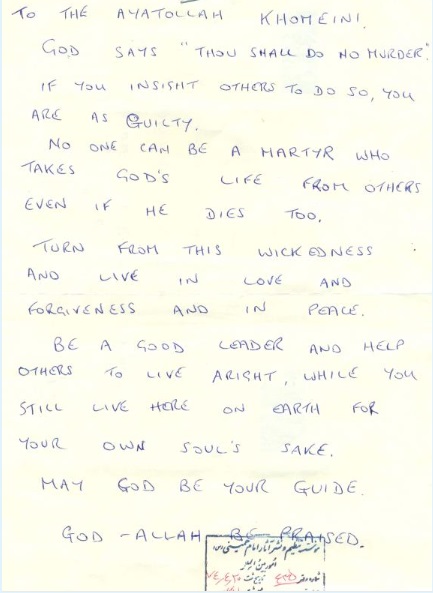 TO THE AYATOLLAH KHOMEINI.
GOD SAYS "THOU SHALL DO NO MURDER".
IF YOU INSIGHT OTHERS TO DO SO, YOU
ARE AS GUILTY.
NO ONE CAN BE A MARTYR WHO
TAKES GOD'S LIFE FROM OTHERS
EVEN IF HE DIES TOO.
TURN FROM THIS WICKEDNESS
AND LIVE IN LOVE AND
FORGIVENESS AND IN PEACE.
BE A GOOD LEADER AND HELP
OTHERS TO LIVE ARIGHT, WHILE YOU
STILL LIVE HERE ON EARTH FOR
YOUR OWN SOUL'S SAKE.
MAY GOD BE YOUR GUIDE.
GOD - ALLAH BE PRAISED.
موسسه تنظیم و نشر آثار امام خمینی
امور بین الملل